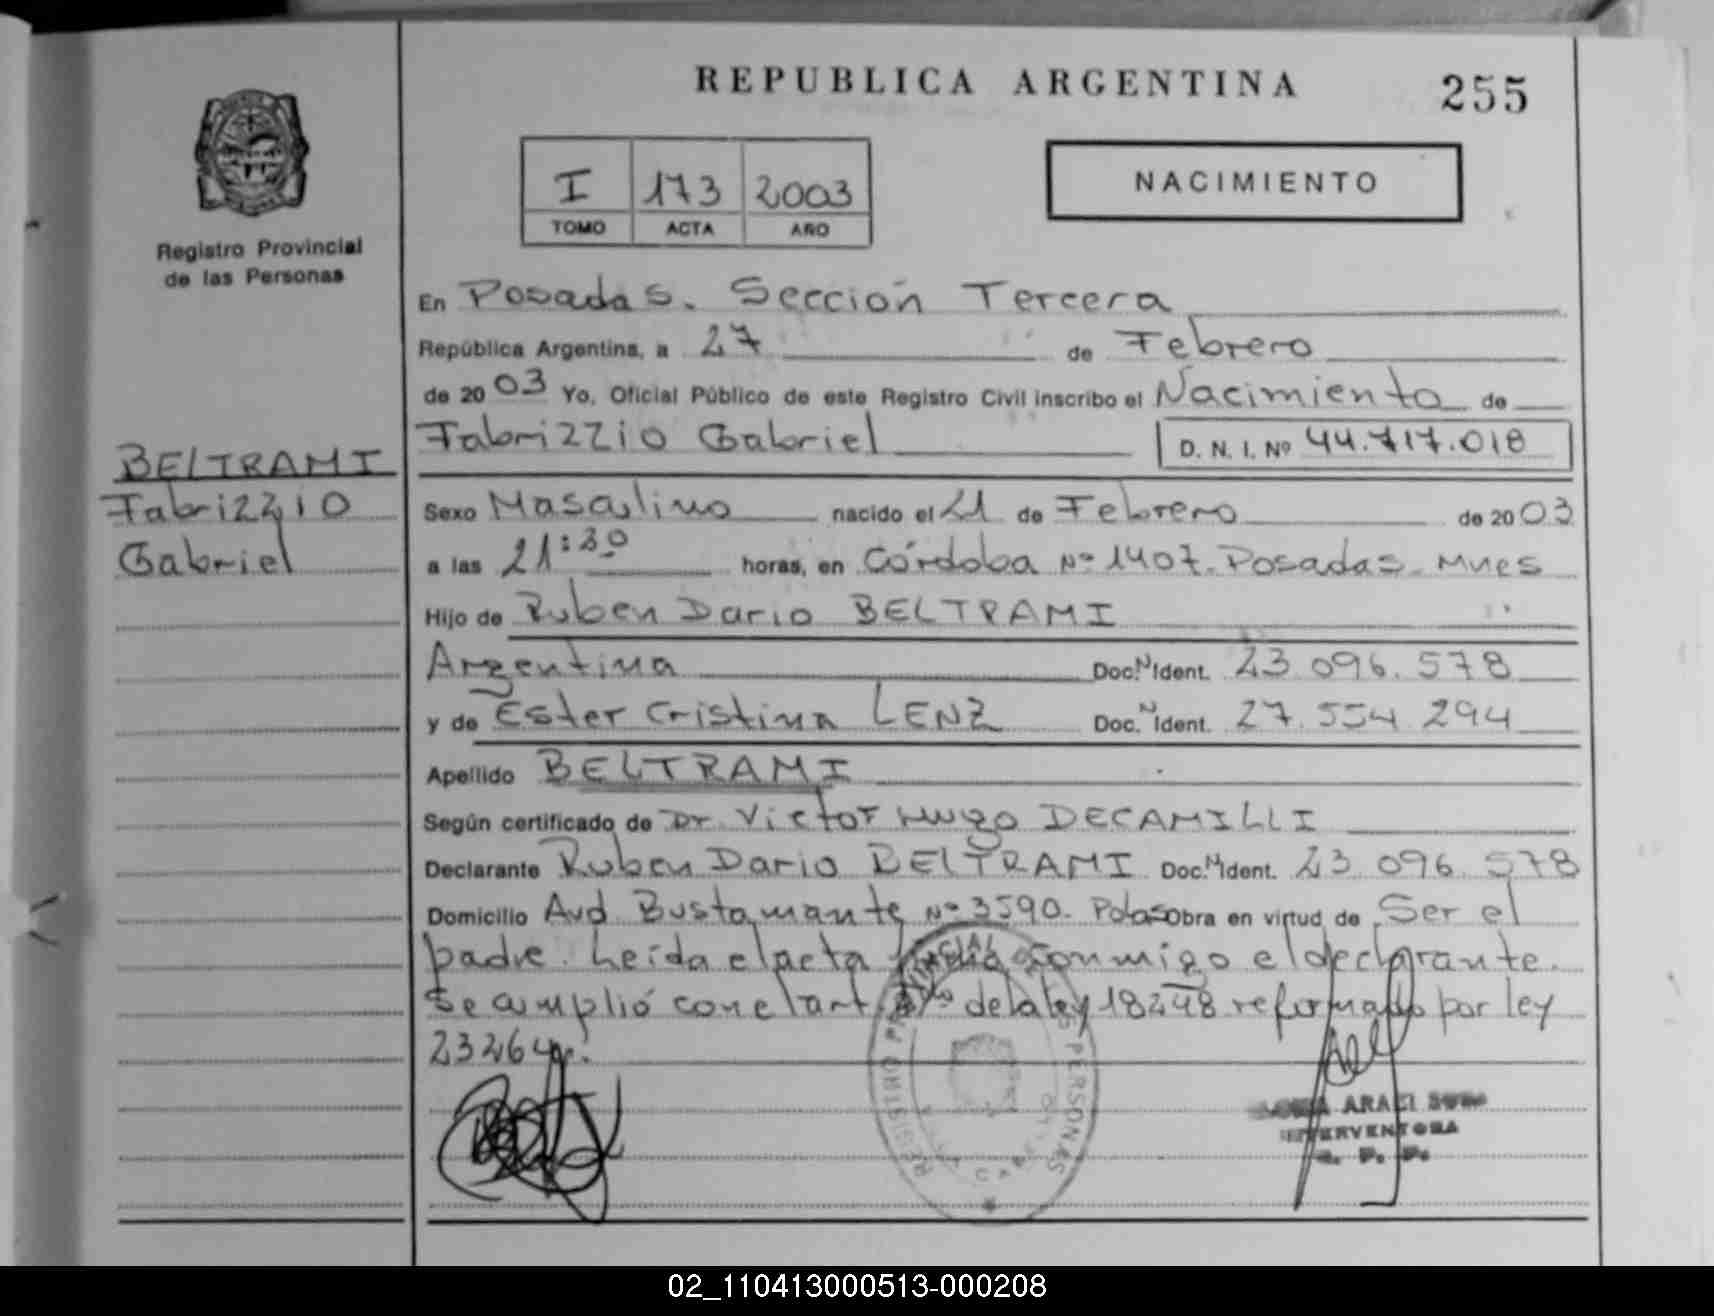 REPUBLICA ARGENTINA
255
I 173 2003
TOMO ACTA AÑO
NACIMIENTO
Registro Provincial
de las Personas
En Posadas. Sección Tercera
República Argentina, a 27 de Febrero
de 2003 Yo, Oficial Público de este Registro Civil inscribo el Nacimiento de
Fabrizzio Gabriel D. N. I. Nº 44.717.018
BELTRAMI
Fabrizzio
Gabriel
Sexo Masculino nacido el 21 de Febrero de 2003
a las 21:30 horas, en Córdoba Nº 1407. Posadas. Mnes
Hijo de Ruben Dario BELTRAMI
Argentina Doc. N Ident. 23.096.578
y de Ester Cristina LENZ Doc. N Ident. 27.554.294
Apellido BELTRAMI
Según certificado de Dr. Victor Hugo DECAMILLI
Declarante Ruben Dario BELTRAMI Doc. N Ident. 23.096.578
Domicilio Avd Bustamante Nº 3590. Pdas Obra en virtud de Ser el
padre. Leída el acta conmigo el declarante.
Se cumplió con el art. de la ley 18248 reformado por ley
23264
REGISTRO PROVINCIAL DE LAS PERSONAS
ARACI
INTERVENTORA
R. P. P.
02_110413000513-000208